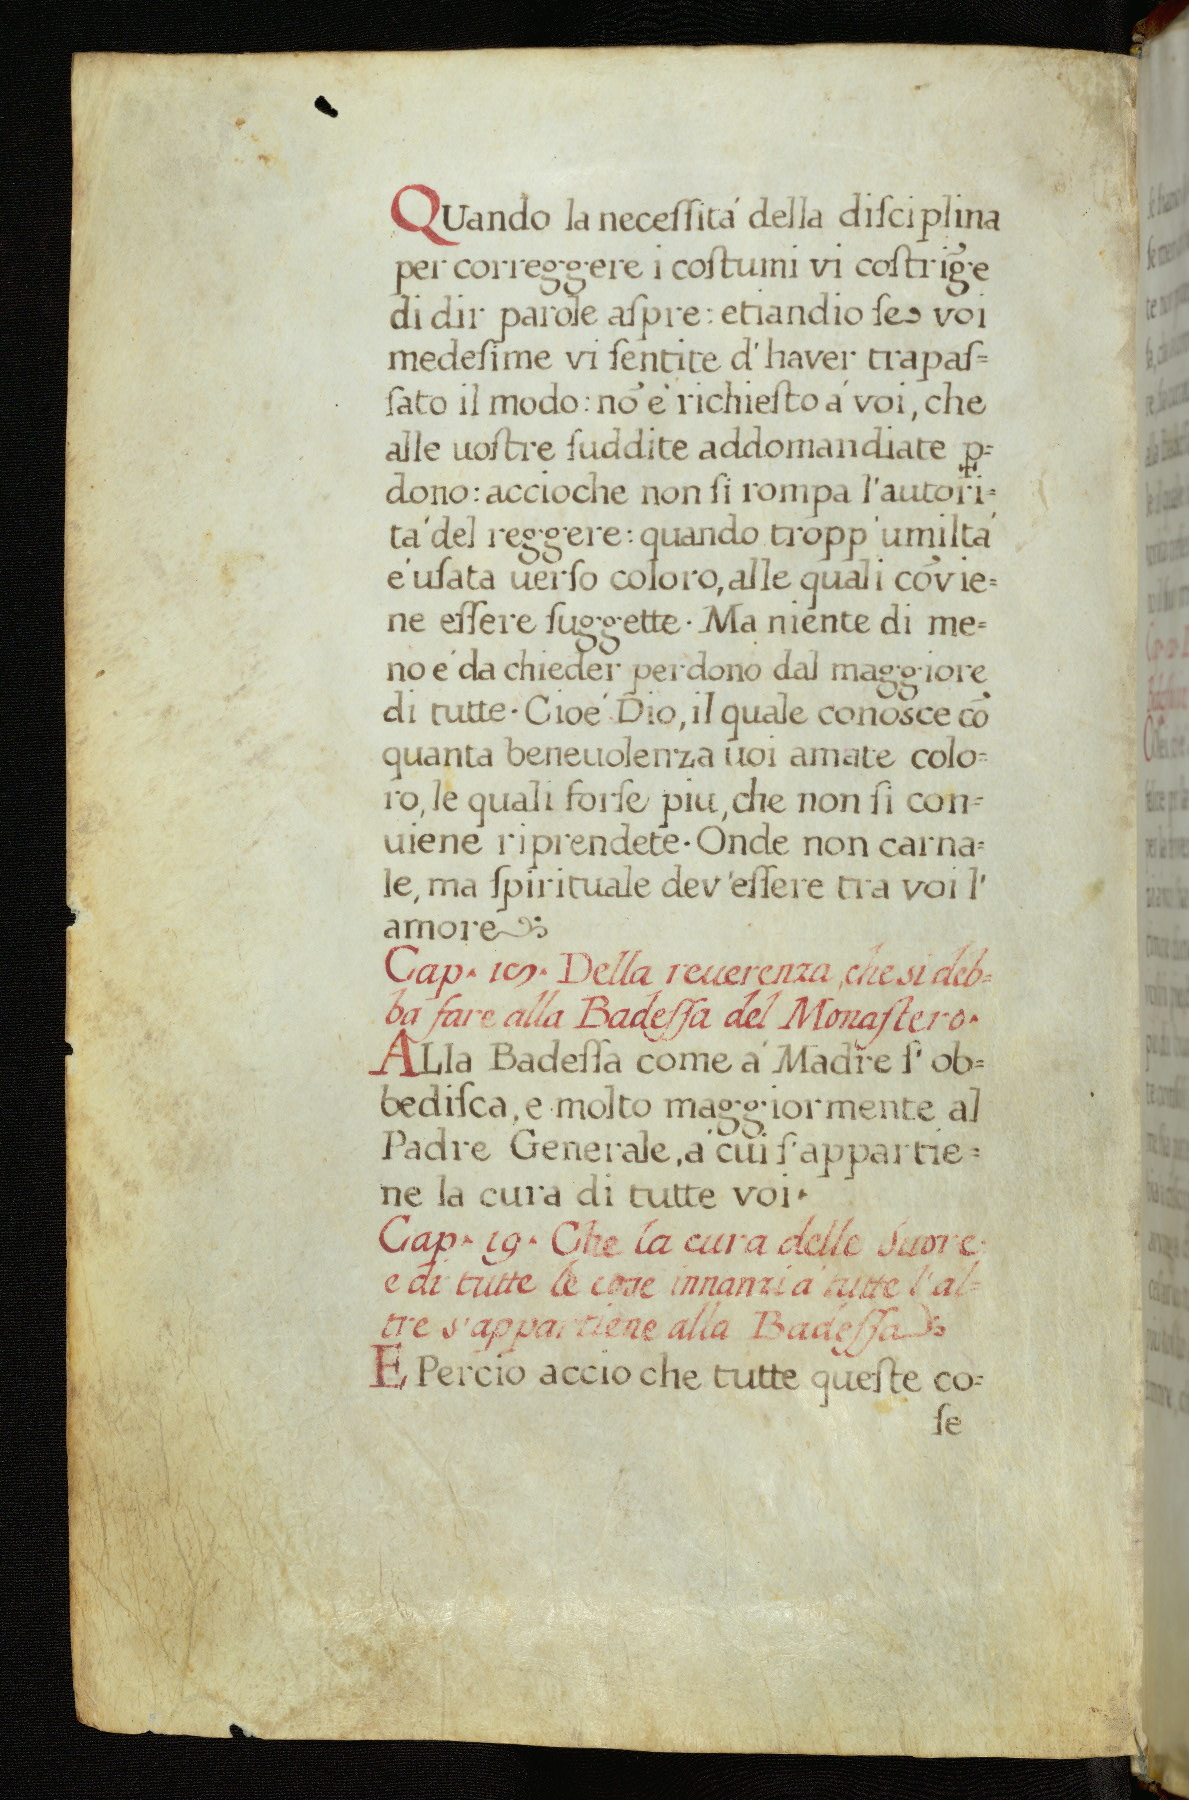 QUando la neceſſitá della diſciplina
per correggere i coſtumi vi coſtrig̃e
di dir parole aſpre: etiandio ſe voi
medeſime vi ſentite d'haver trapaſ=
ſato il modo: nõ é richieſto á voi, che
alle uoſtre ſuddite addomandiate ꝑ=
dono: accioche non ſi rompa l'autori=
tá del reggere: quando tropp'umiltá
é uſata uerſo coloro, alle quali cõvie=
ne eſſere ſuggette. Ma niente di me=
no é da chieder perdono dal maggiore
di tutte. Cioé Dio, il quale conosce cõ
quanta beneuolenza uoi amate colo=
ro, le quali forſe piu, che non ſi con=
uiene riprendete. Onde non carna=
le, ma ſpirituale dev'eſſere tra voi l'
amore
Cap. Della reuerenza, che si deb=
ba fare alla Badeſſa del Monaſtero.
ALla Badeſſa come á Madre ſ'ob=
bediſca, e molto maggiormente al
Padre Generale, á cui ſ'appartie=
ne la cura di tutte voi.
Cap. 19. Che la cura delle Suore
e di tutte le cose innanzi á tutte l'al=
tre s'appartiene alla Badeſſa
E Percio accio che tutte queſte co=
ſe